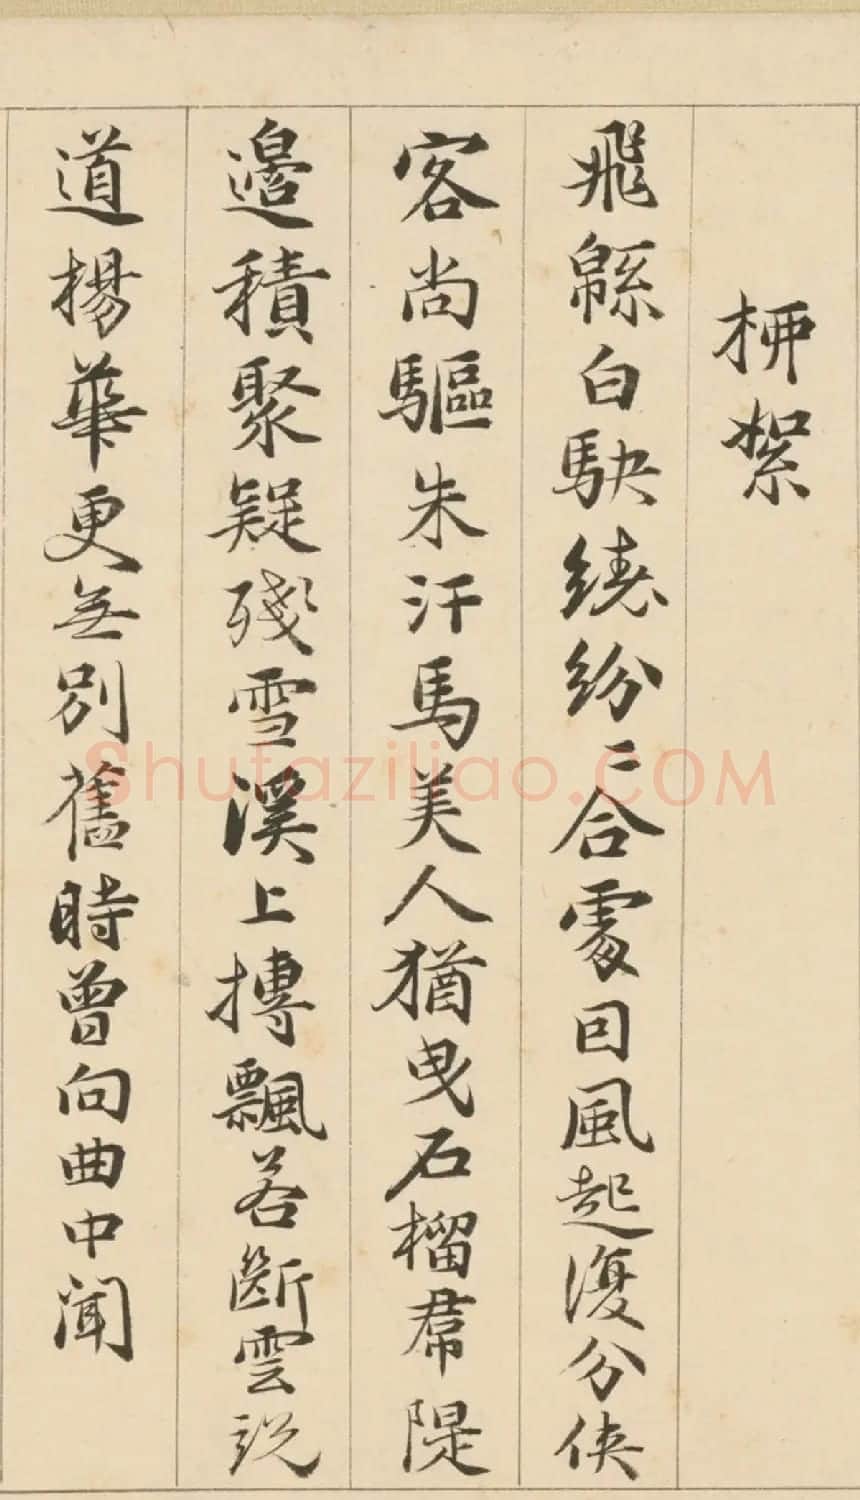 桺絮
飛緜白駃繞紛〻合處回風起復分俠
客尚驅朱汗馬美人猶曳石榴帬隄
邉積聚疑殘雪溪上摶飄若斷雲説
道楊華更無別舊時曾向曲中聞
Shufaziliao.COM